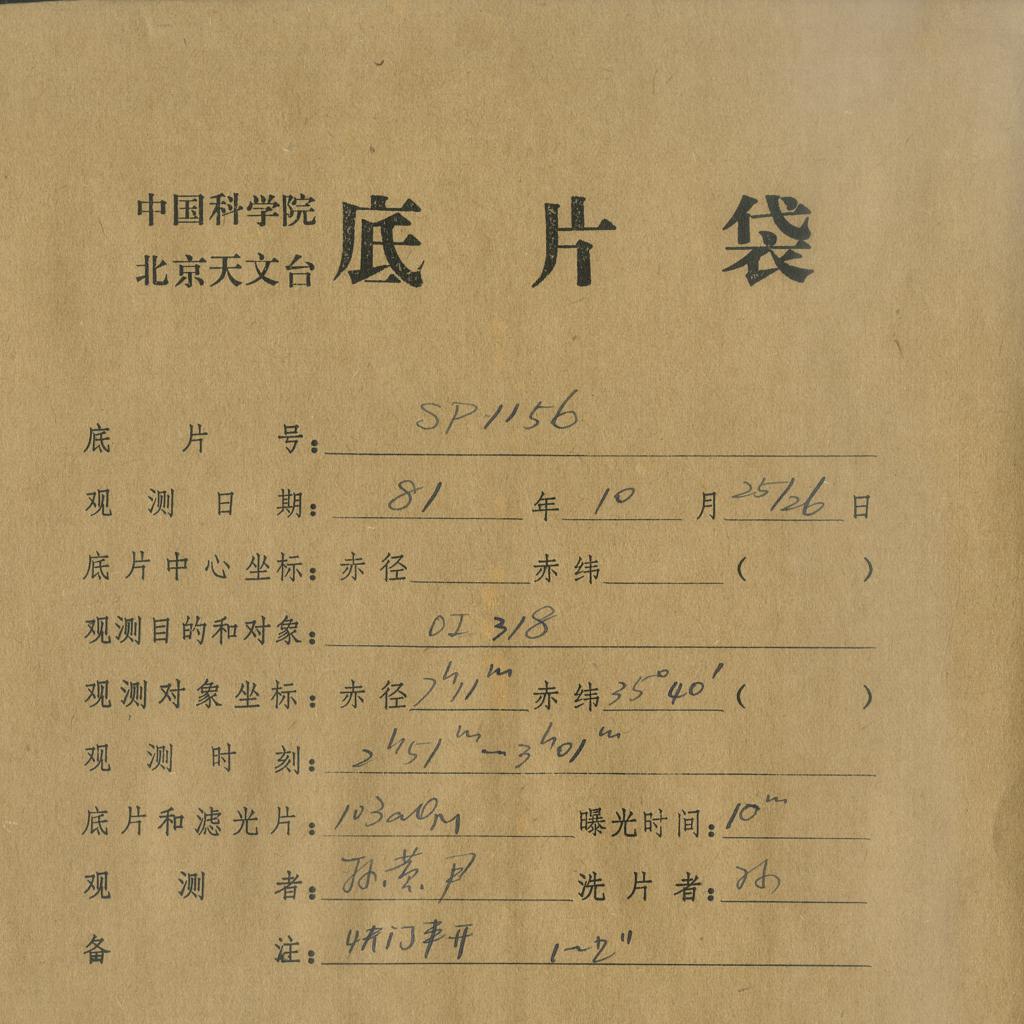 中国科学院
北京天文台
底片袋
底片号：SP1156
观测日期：81年10月25/26日
底片中心坐标：赤径 赤纬 （ ）
观测目的和对象：OI 318
观测对象坐标：赤径7h11m 赤纬35°40′（ ）
观测时刻：2h51m—3h01m
底片和滤光片：103aO 曝光时间：10m
观测者：孙.黄.尹 洗片者：孙
备注：快门 开 1~2"